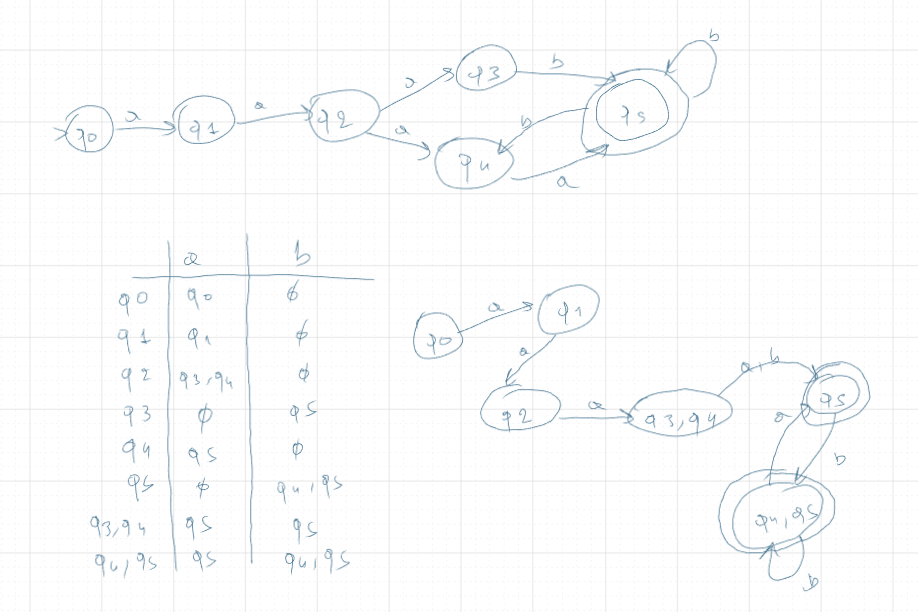 a
a
a
a
b
b
b
a
q0
q1
q2
q3
q4
q5
a b
q0 q0 ϕ
q1 q1 ϕ
q2 q3,q4 ϕ
q3 ϕ q5
q4 q5 ϕ
q5 ϕ q4,q5
q3,q4 q5 q5
q4,q5 q5 q4,q5
q0
a
q1
a
q2
a
q3,q4
a,b
q5
a
b
q4,q5
b